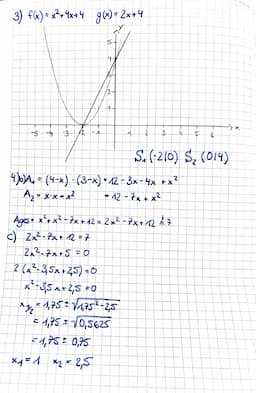 3) f(x) = x²+4x+4 g(x) = 2x+4
y
5
4
3
2
1
-5 -4 -3 -2 -1 1 2 3 4 5 6 x
S₁ (-2|0) S₂ (0|4)
4) b) A₁ = (4-x) · (3-x) = 12 - 3x - 4x + x²
A₂ = x·x = x² = 12 - 7x + x²
Ages = x² + x² - 7x + 12 = 2x² - 7x + 12 = 7
c) 2x² - 7x + 12 = 7
2x² - 7x + 5 = 0
2 (x² - 3,5x + 2,5) = 0
x² - 3,5x + 2,5 = 0
x₁/₂ = 1,75 ± √1,75² - 2,5
= 1,75 ± √0,5625
= 1,75 ± 0,75
x₁ = 1 x₂ = 2,5